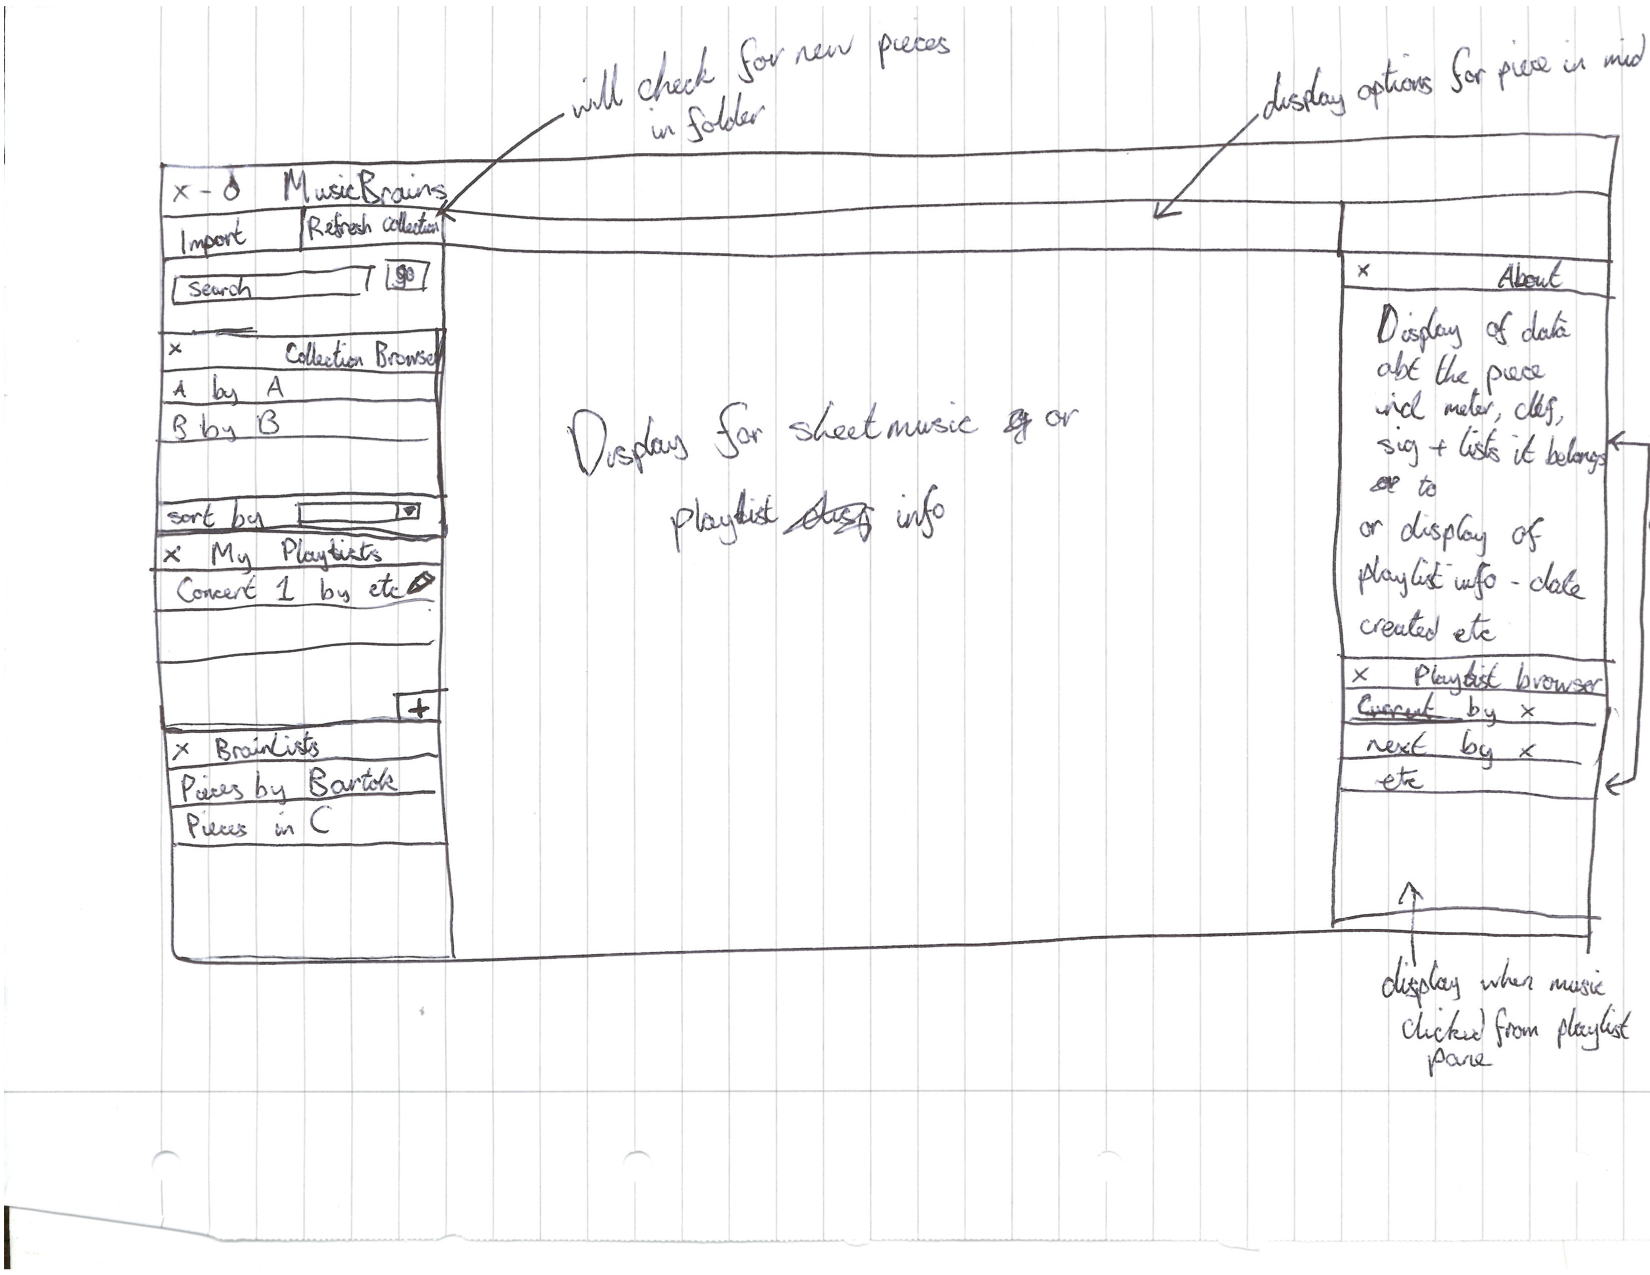 will check for new pieces
in folder
display options for piece in mid
x - MusicBrains
Import
Refresh collection
search
go
x Collection Browser
A by A
B by B
sort by
x My Playlists
Concert 1 by etc
+
x BrainLists
Pieces by Bartok
Pieces in C
Display for sheetmusic or
playlist info
x About
Display of data
abt the piece
incl meter, clef,
sig + lists it belongs
to
or display of
playlist info - date
created etc
x Playlist browser
Current by x
next by x
etc
display when music
clicked from playlist
pane